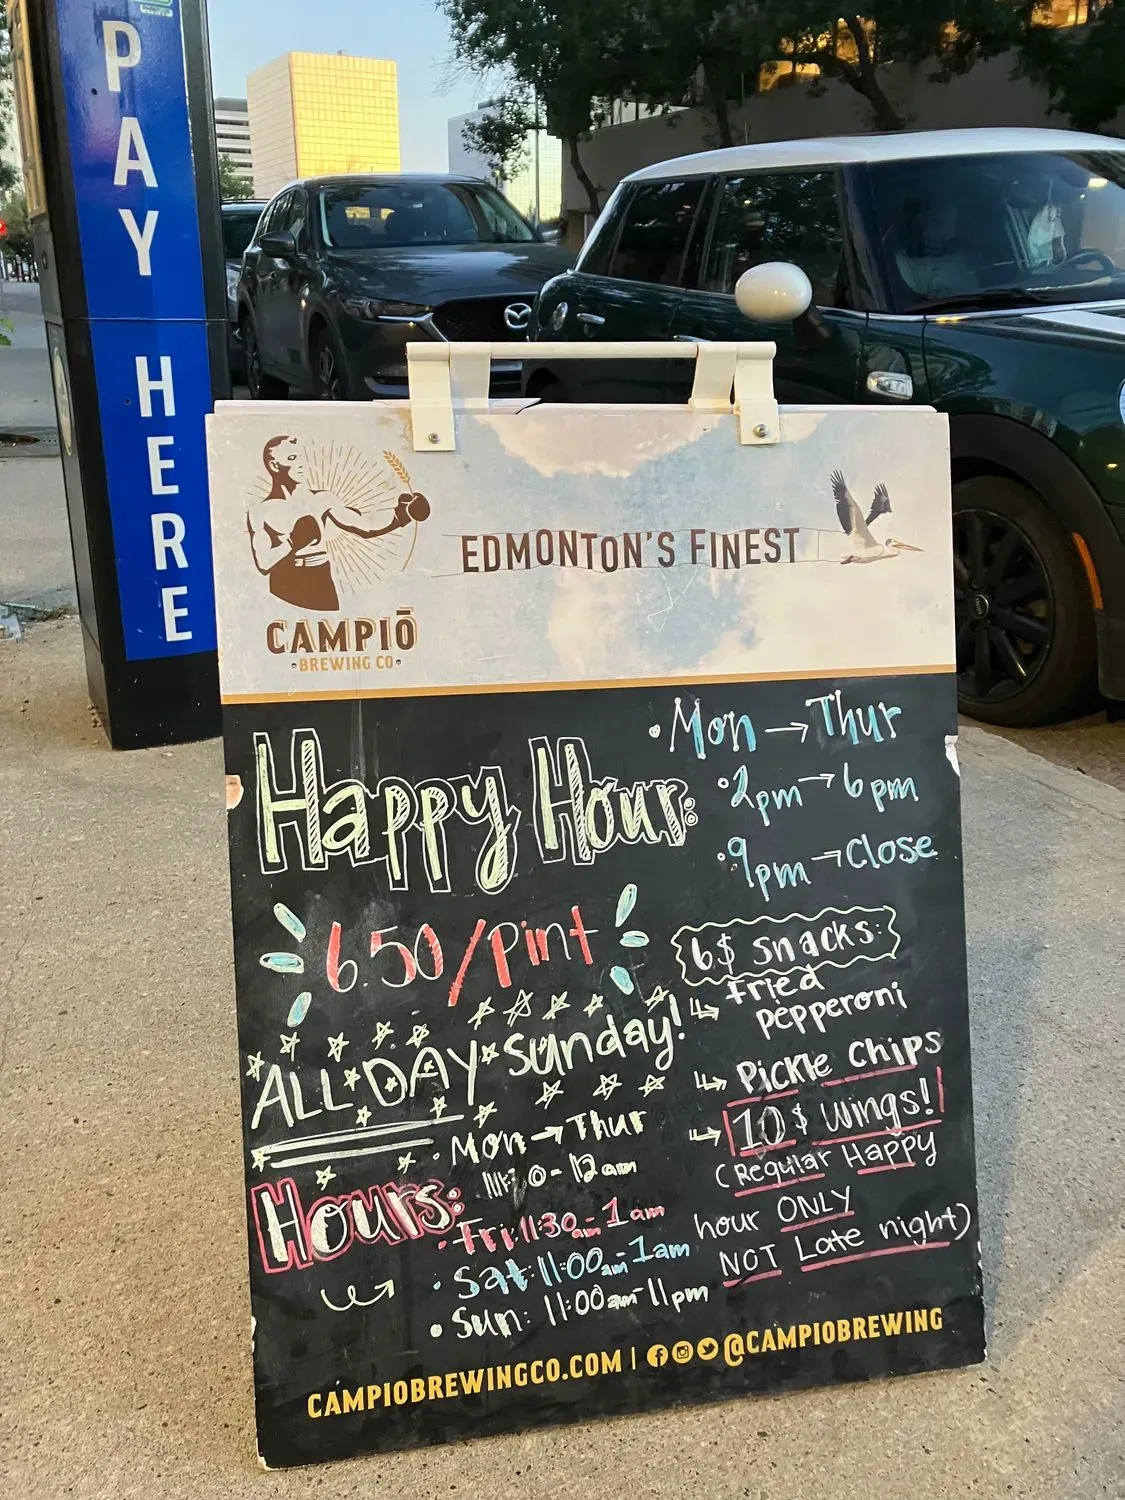 PAY HERE
EDMONTON'S FINEST
CAMPIŌ
BREWING CO
Happy Hour:
• Mon → Thur
• 2pm → 6pm
• 9pm → Close
6.50/Pint
ALL DAY Sunday!
6$ snacks:
↳ Fried
pepperoni
↳ Pickle Chips
↳ 10$ Wings!
(Regular Happy
hour ONLY
NOT Late night)
Hours:
• Mon → Thur
- 12am
• Fri: 11:30am - 1am
• Sat: 11:00am - 1am
• Sun: 11:00am - 11pm
CAMPIOBREWINGCO.COM | @CAMPIOBREWING